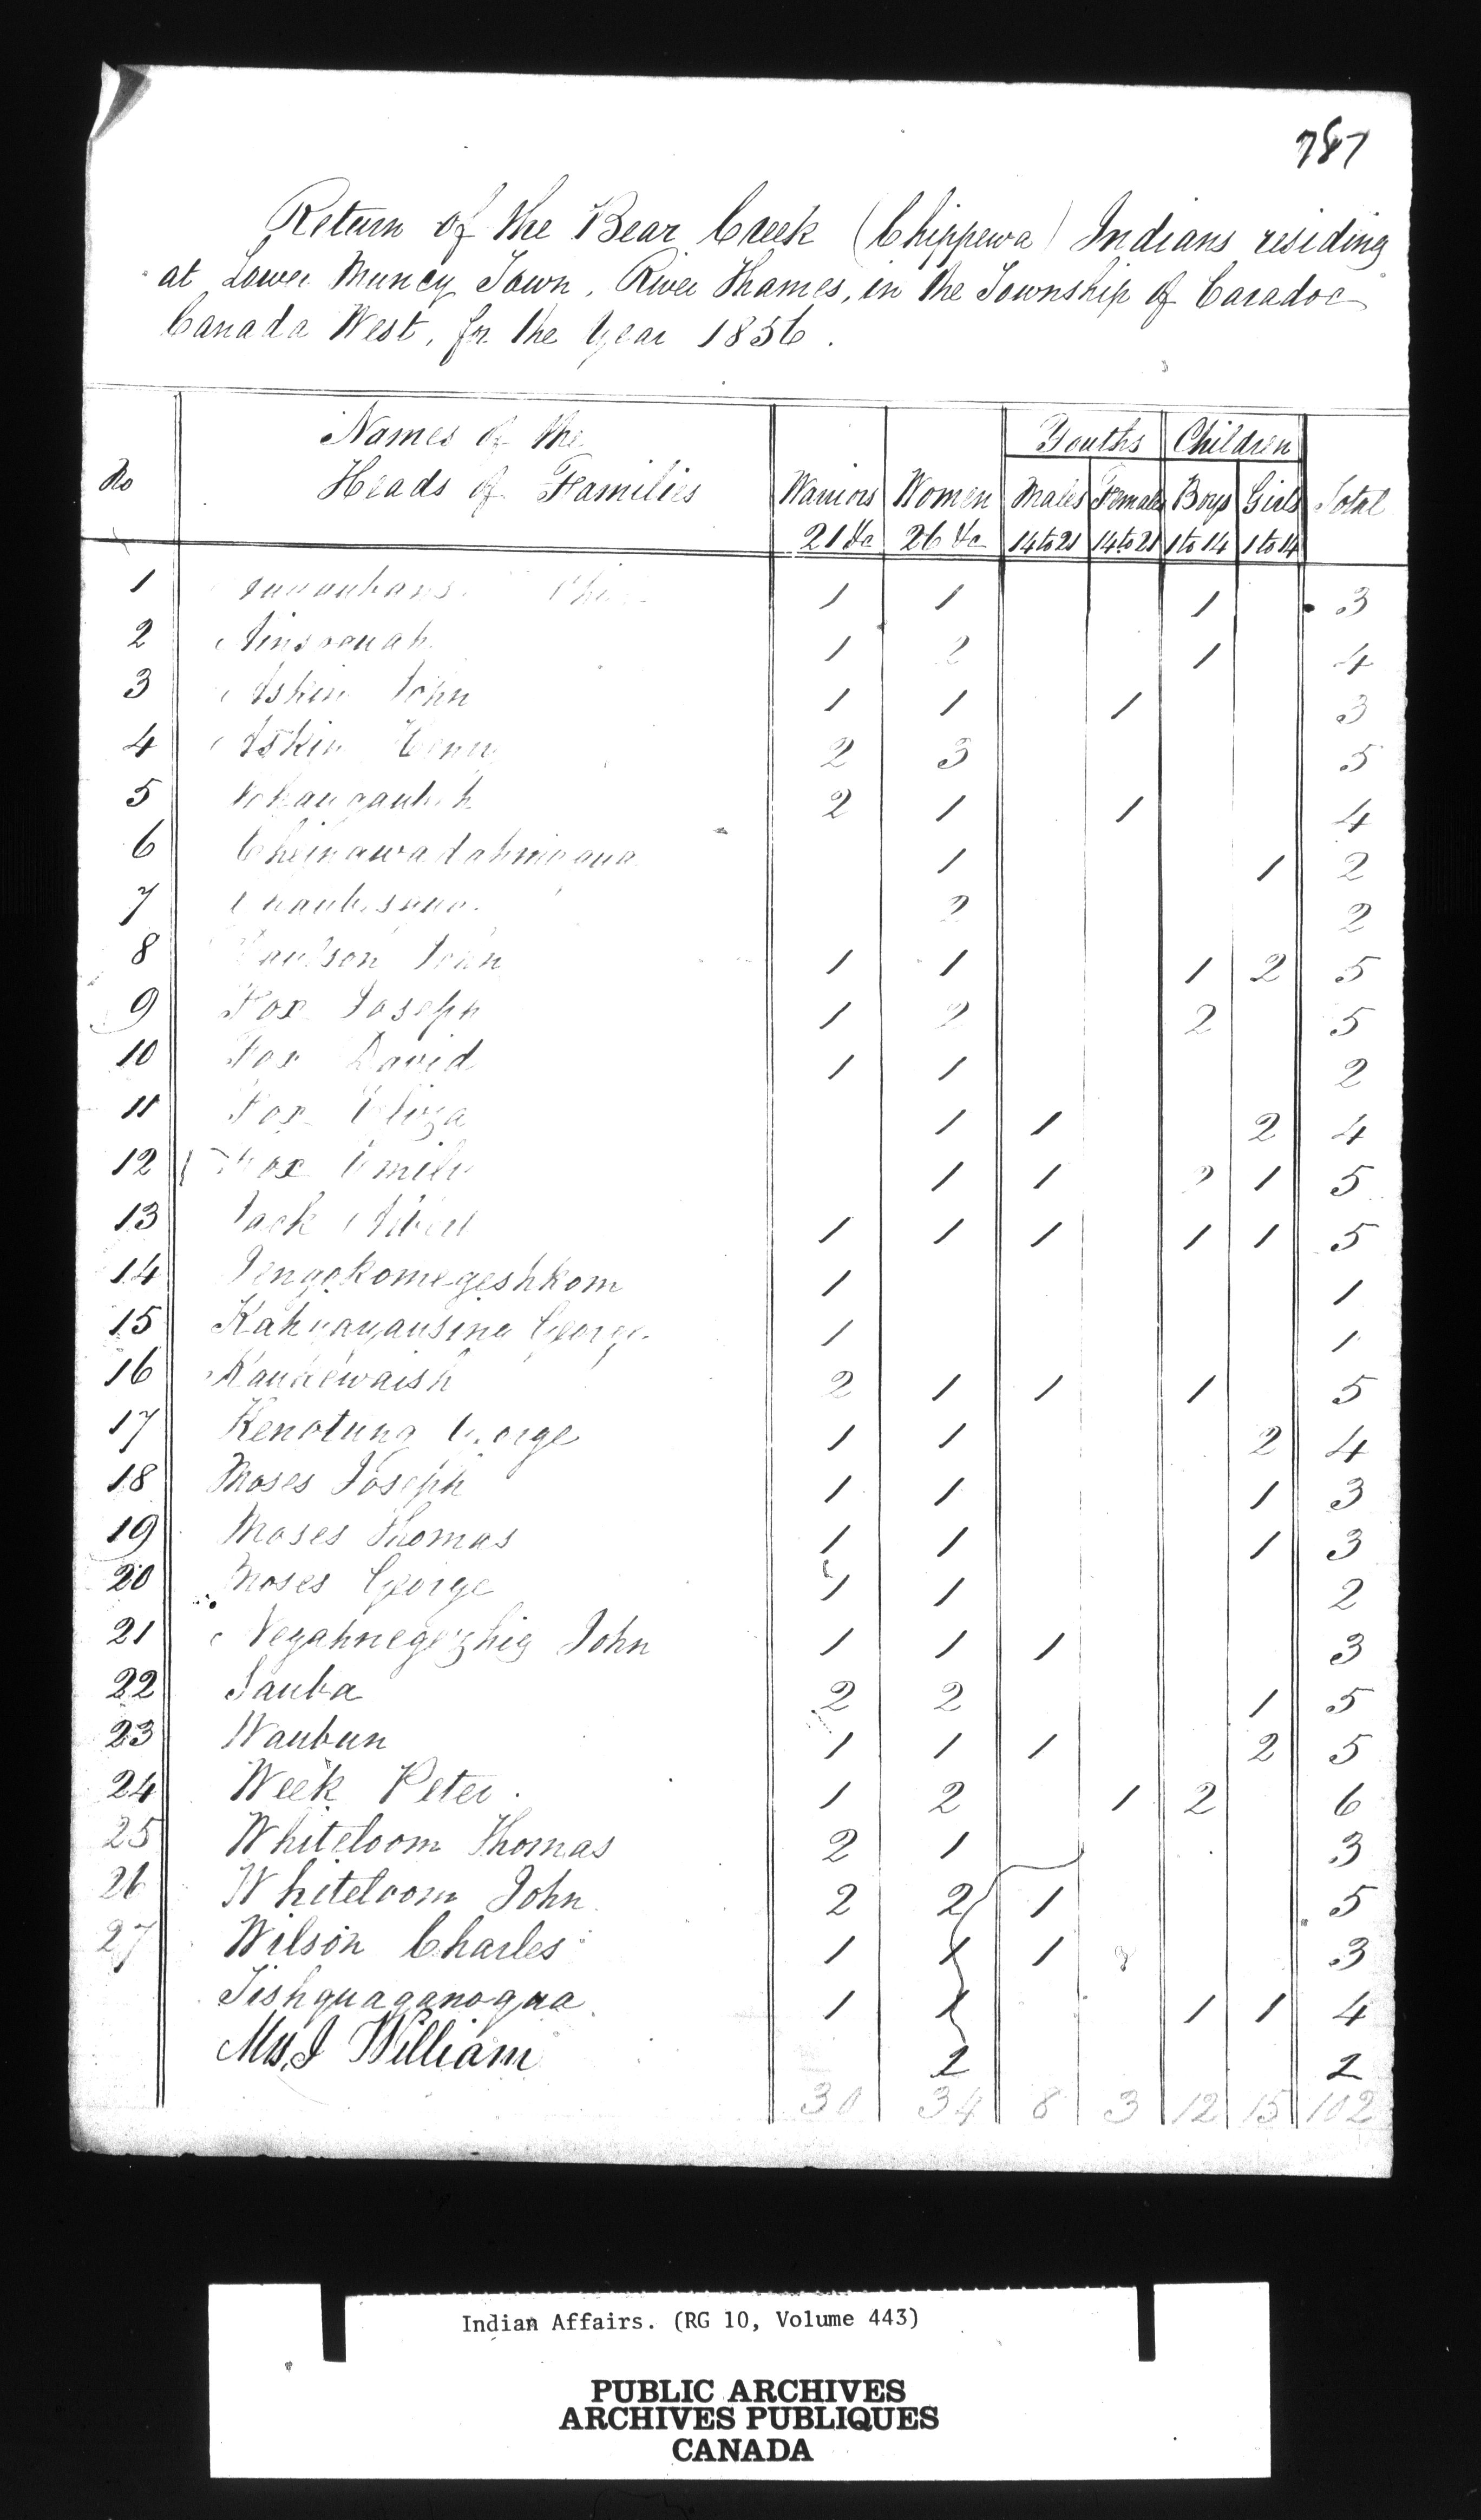 787
Return of the Bear Creek (Chippewa) Indians residing
at Lower Muncy Town, River Thames, in the Township of Caradoc
Canada West, for the Year 1856.
No Names of the Heads of Families Warriors 21 &c Women 26 &c Youths Males 14 to 21 Females 14 to 21 Children Boys 1 to 14 Girls 1 to 14 Total
1 1 1 1 3
2 1 2 1 4
3 Askin John 1 1 1 3
4 Askin 2 3 5
5 2 1 1 4
6 1 1 2
7 2 2
8 John 1 1 1 2 5
9 Fox Joseph 1 2 2 5
10 Fox David 1 1 2
11 Fox Eliza 1 1 2 4
12 Fox Emily 1 1 2 1 5
13 Jack 1 1 1 1 1 5
14 Jengokomegeshkom 1 1
15 George 1 1
16 2 1 1 1 5
17 Kenotung George 1 1 2 4
18 Moses Joseph 1 1 1 3
19 Moses Thomas 1 1 1 3
20 Moses George 1 1 2
21 Negahnegezhig John 1 1 1 3
22 Sauba 2 2 1 5
23 Waubun 1 1 1 2 5
24 Week Peter 1 2 1 2 6
25 Whiteloom Thomas 2 1 3
26 Whiteloom John 2 2 1 5
27 Wilson Charles 1 1 1 3
Tishquaganoqua 1 1 1 1 4
Mrs J William 2 2
30 34 8 3 12 15 102
Indian Affairs. (RG 10, Volume 443)
PUBLIC ARCHIVES
ARCHIVES PUBLIQUES
CANADA